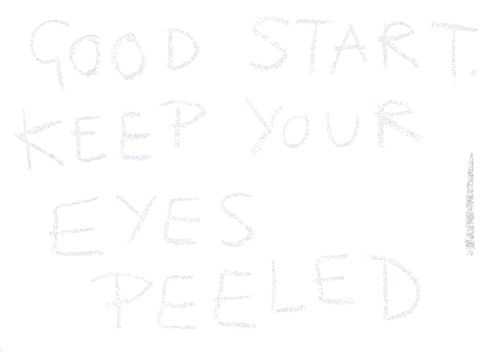 GOOD START.
KEEP YOUR
EYES
PEELED